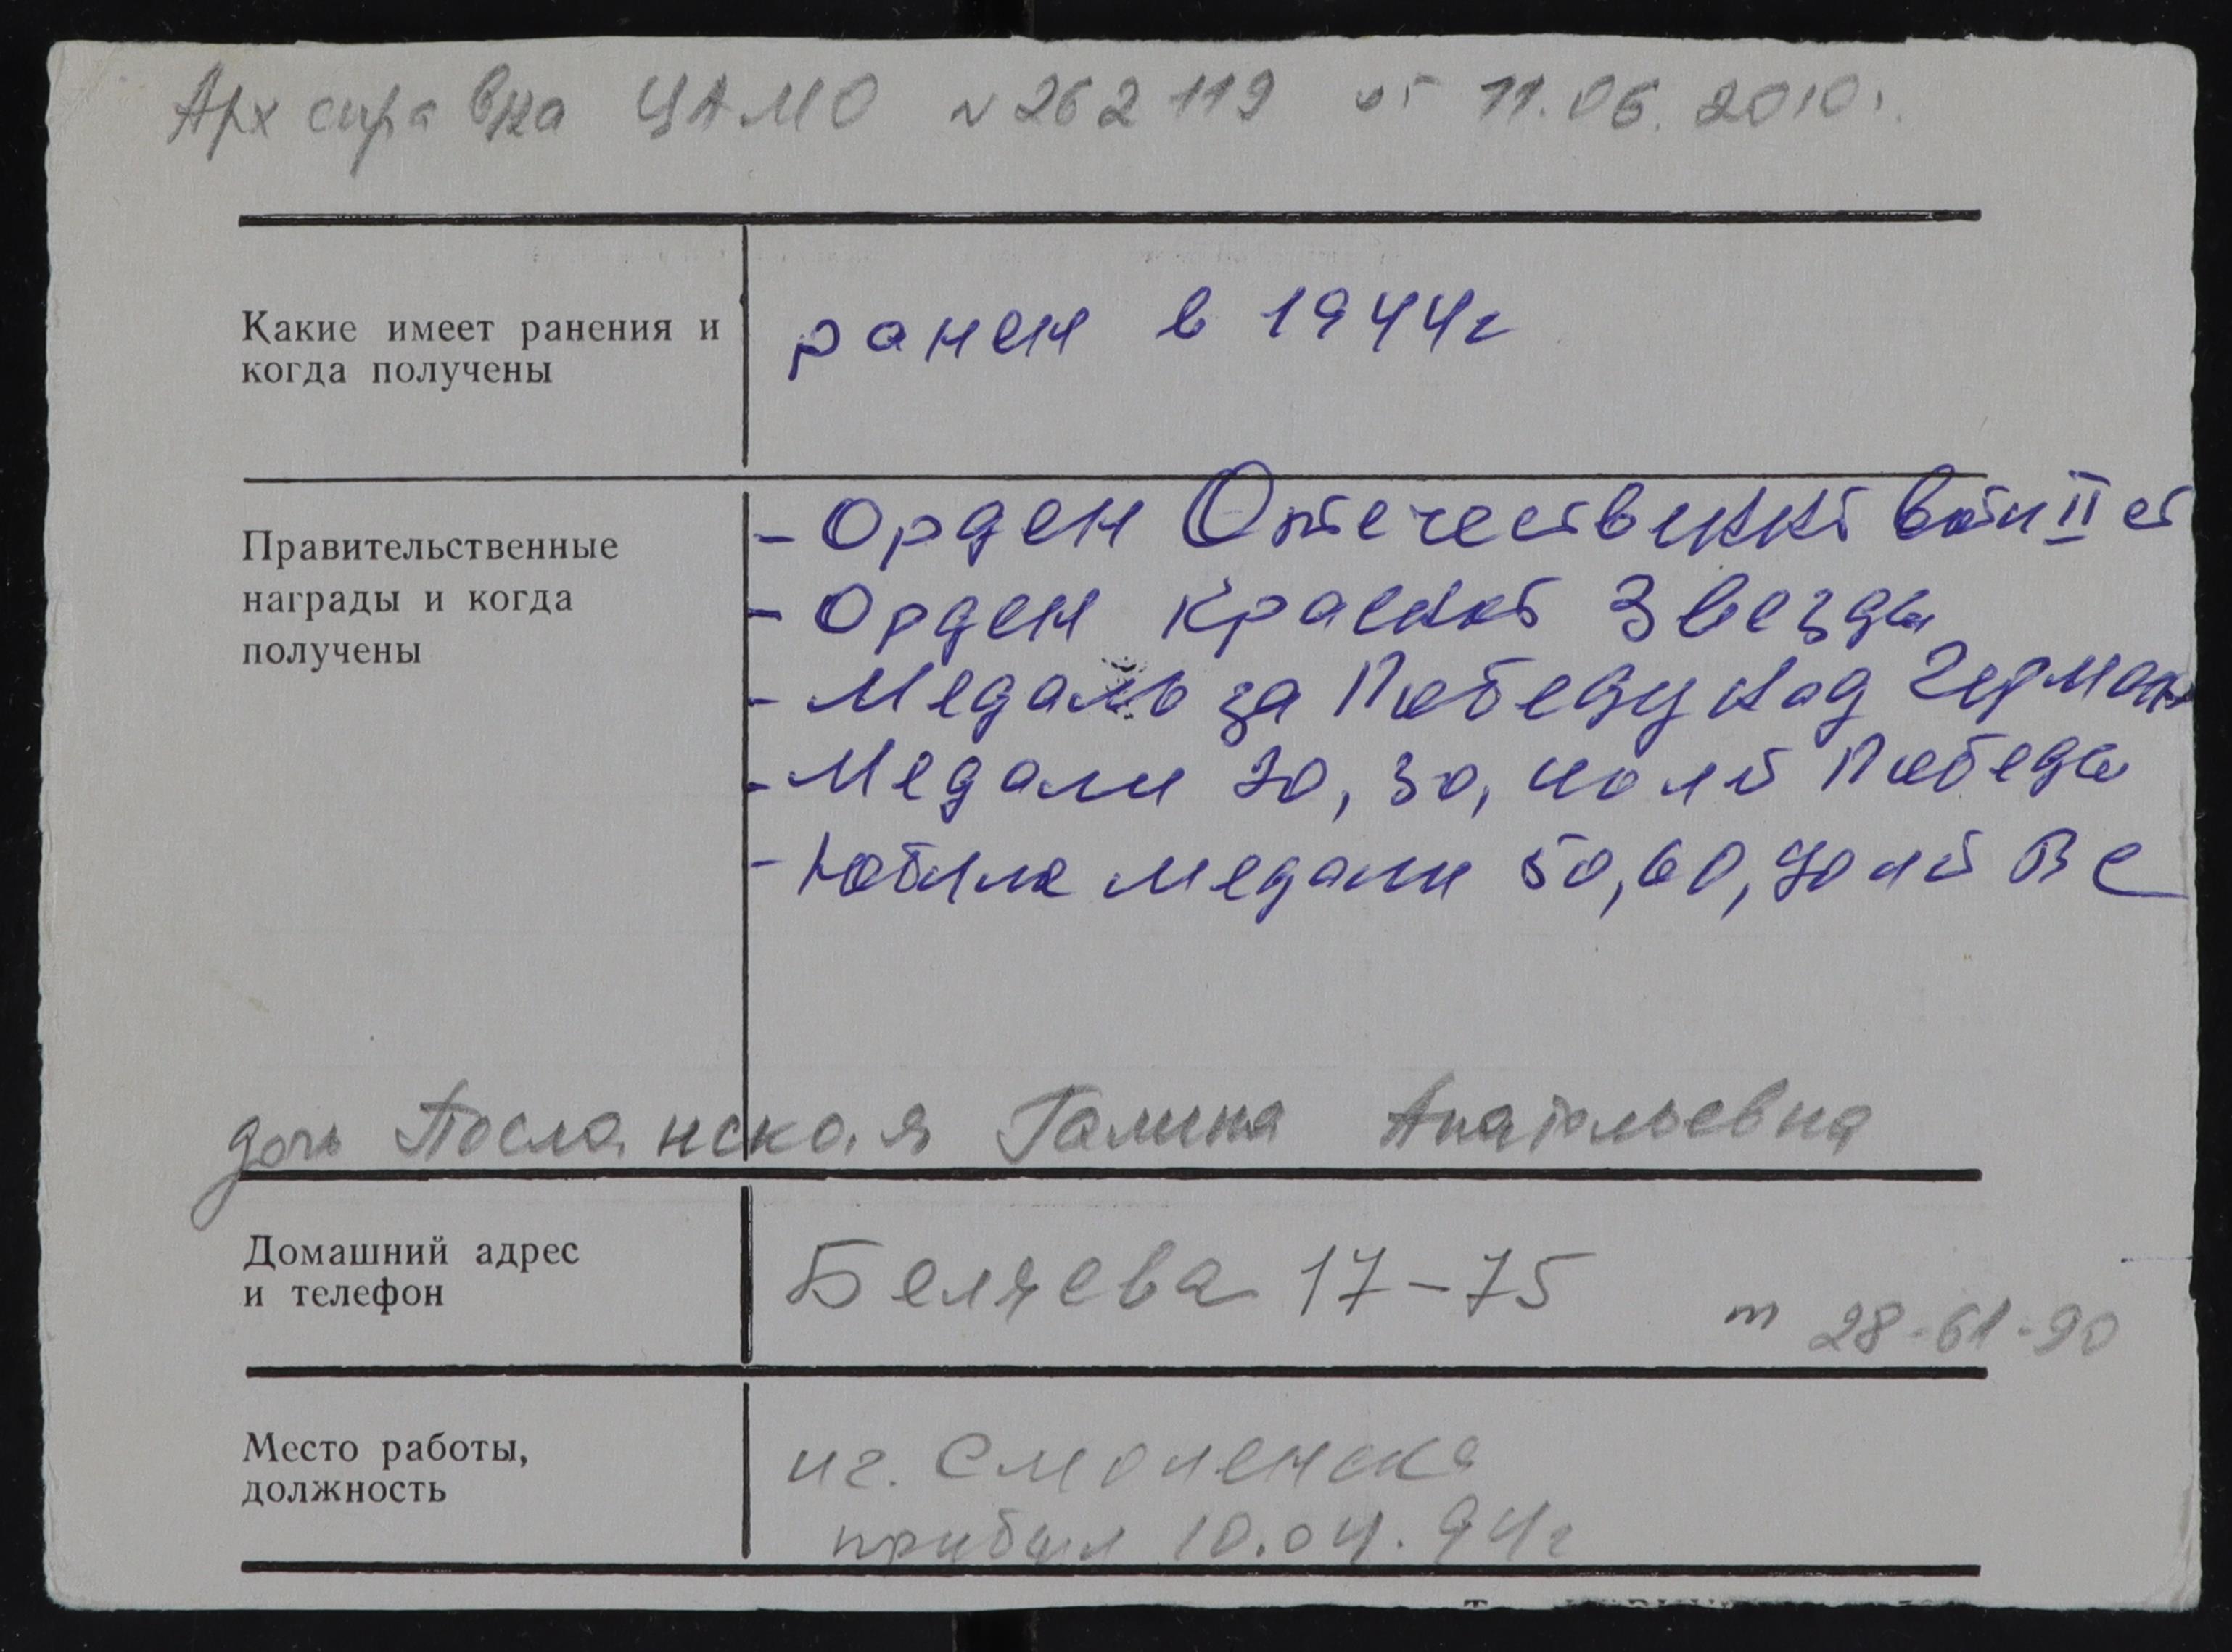 Арх справка ЦАМО № 262119 от 11.06.2010г.
Какие имеет ранения и
когда получены
ранен в 1944г
Правительственные
награды и когда
получены
- Орден Отечественной войн II ст
- Орден Красной Звезды
- Медаль за Победу над Герман
- Медали 20, 30, 40 лет Победы
- Юбиле медали 50, 60, 70 лет ВС
дочь Посланская Галина Анатольевна
Домашний адрес
и телефон
Беляева 17-75
т 28-61-90
Место работы,
должность
и г. Смоленска
прибыл 10.04.94г